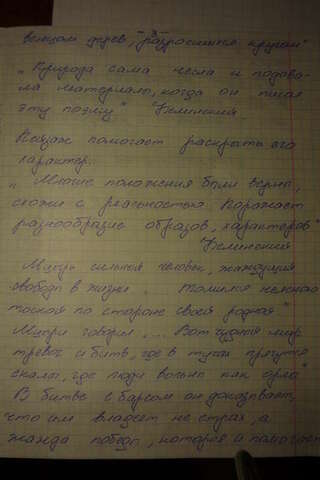 венцом дерев, разросшихся кругом"
"Природа сама несла и подава-
ла материалы, когда он писал
эту поэму" Белинский
Пейзаж помогает раскрыть его
характер.
"Многие положения были верно,
схожи с реальностью. Поражает
разнообразие образов, характеров"
Белинский
Мцыри сильный человек, жаждущий
свободы в жизни
тоской по стороне своей родная"
Мцыри говорил „... Вот чудный мир
тревог и битв, где в тучах прячутся
скалы, где люди вольны как орлы"
В битве с барсом он доказывает,
что им владеет не страх, а
жажда победы, которая и помогает